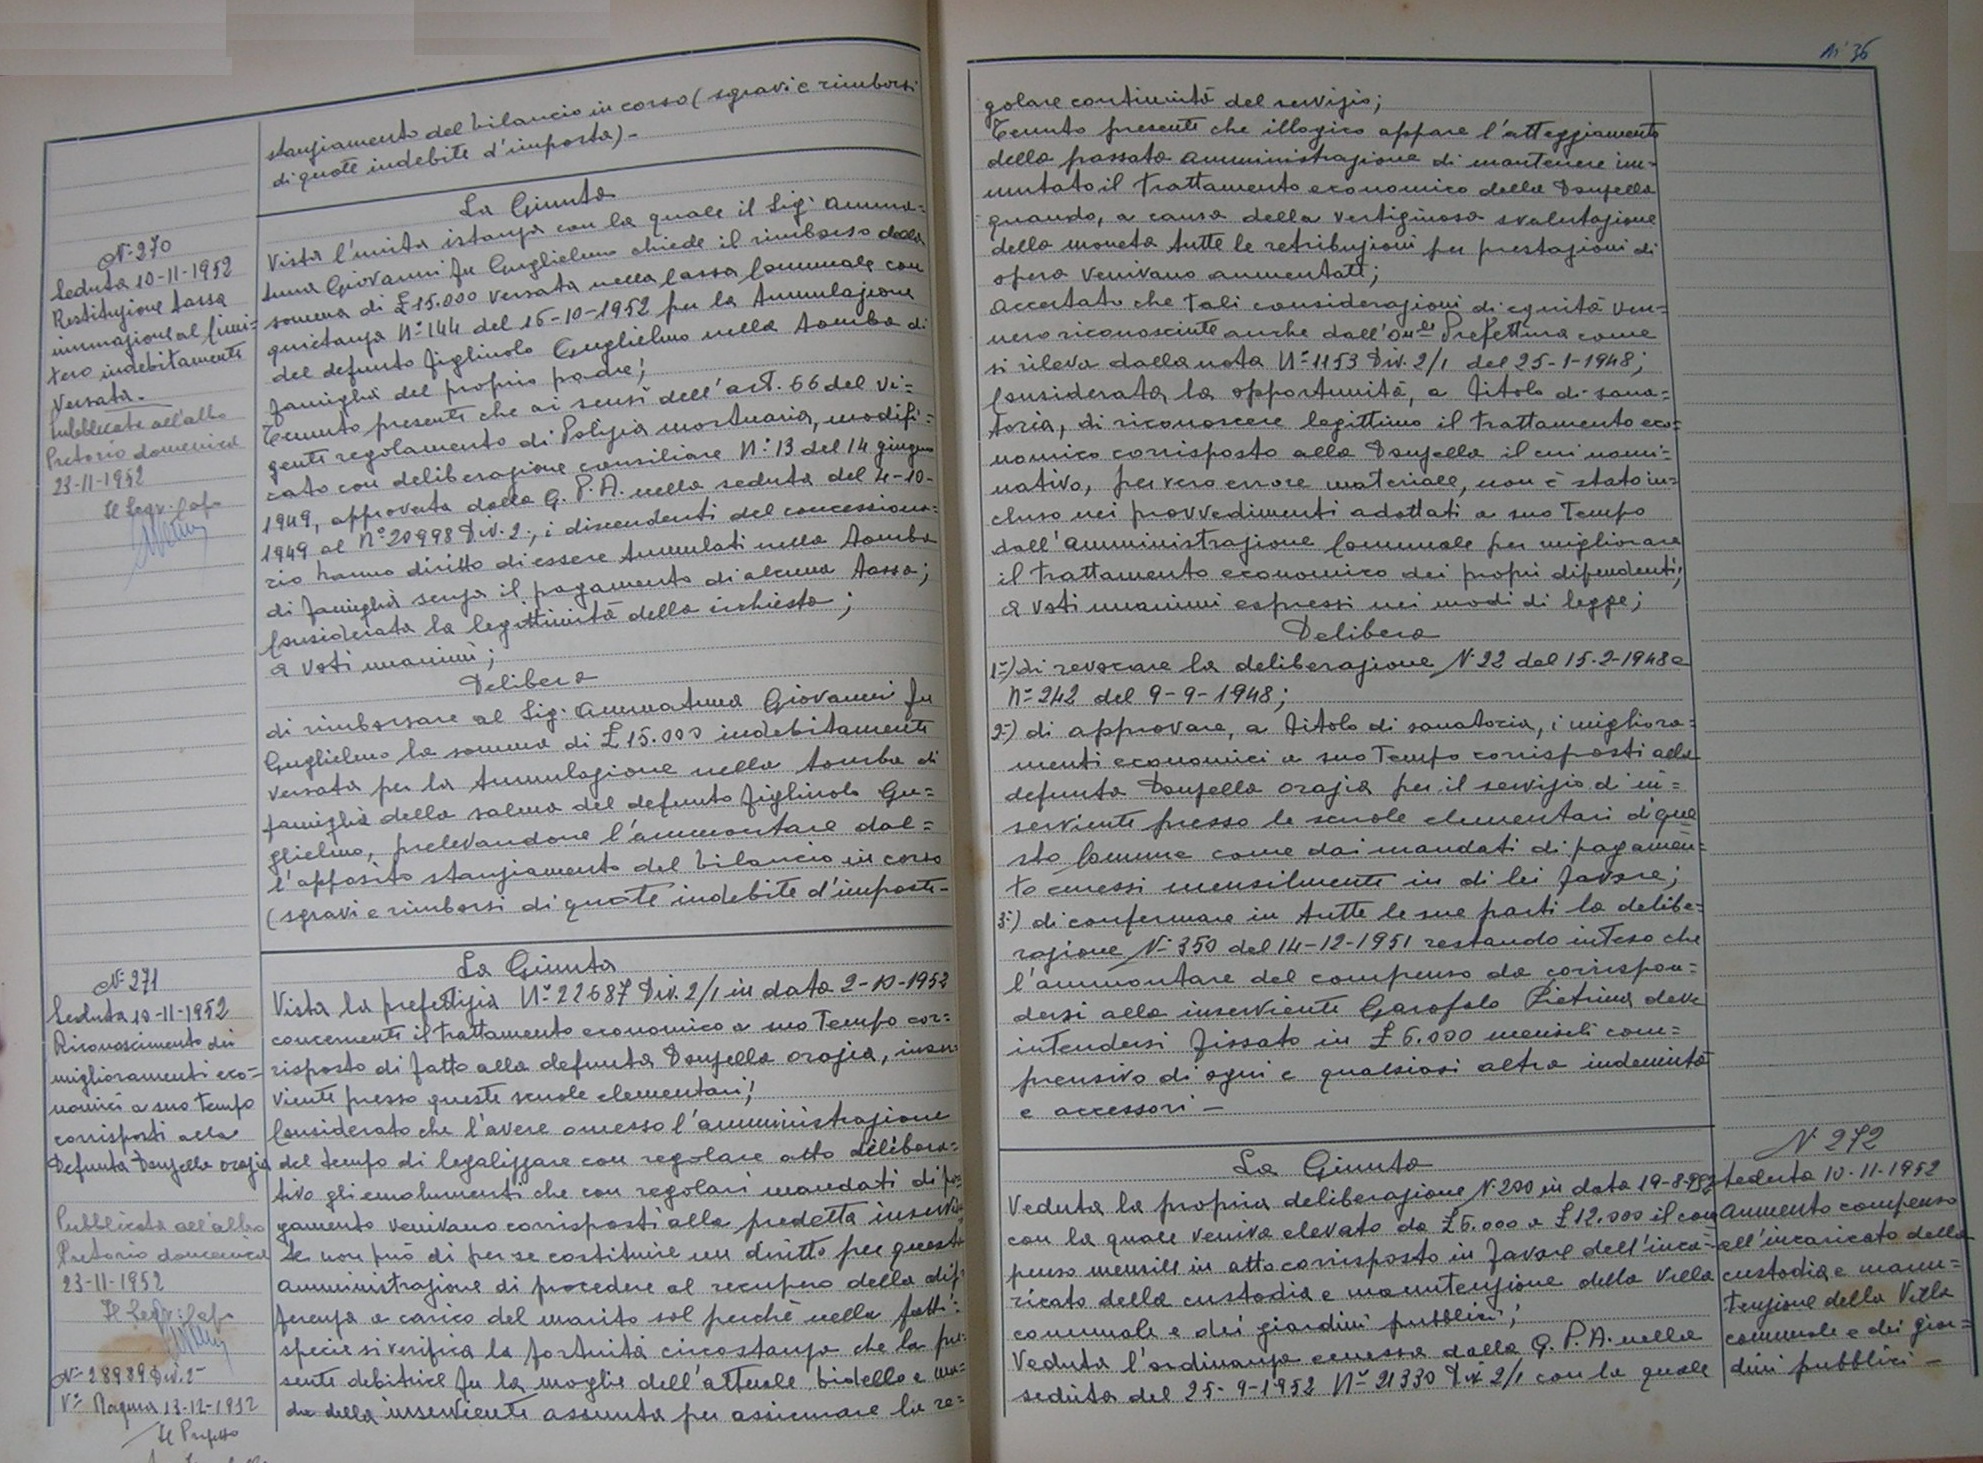 stanziamento del bilancio in corso (sgravi e rimborsi
di quote indebite d'imposta)-
N. 270
Seduta 10-11-1952
Restituzione tassa
inumazione al cimi-
tero indebitamente
versata.-
Pubblicata all'albo
Pretorio domenica
23-11-1952
Il Segr. Capo
La Giunta
Vista l'unita istanza con la quale il Sig. Amma=
tuna Giovanni fu Guglielmo chiede il rimborso della
somma di £ 15.000 versata nella Cassa Comunale con
quietanza N° 144 del 16-10-1952 per la tumulazione
del defunto figliuolo Guglielmo nella tomba di
famiglia del proprio padre;
Tenuto presente che ai sensi dell'art. 66 del vi=
gente regolamento di Polizia mortuaria, modifi=
cato con deliberazione consiliare N° 13 del 14 giugno
1949, approvata dalla G. P. A. nella seduta del 4-10-
1949 al N° 20998 Div. 2, i discendenti del concessiona=
rio hanno diritto di essere tumulati nella tomba
di famiglia senza il pagamento di alcuna tassa;
Considerata la legittimità della richiesta;
a voti unanimi;
Delibera
di rimborsare al Sig. Ammatuna Giovanni fu
Guglielmo la somma di £ 15.000 indebitamente
versata per la tumulazione nella tomba di
famiglia della salma del defunto figliuolo Gu=
glielmo, prelevandone l'ammontare dal=
l'apposito stanziamento del bilancio in corso
(sgravi e rimborsi di quote indebite d'imposte-
N. 271
Seduta 10-11-1952
Riconoscimento dei
miglioramenti eco=
nomici a suo tempo
corrisposti alla
Defunta Donzella Orazia
Pubblicata all'albo
Pretorio domenica
23-11-1952
Il Segr. Capo
N° 28989 Div. 2
V° Ragusa 13-12-1952
Il Prefetto
La Giunta
Vista la prefettizia N° 22687 Div. 2/1 in data 2-10-1952
concernente il trattamento economico a suo tempo cor=
risposto di fatto alla defunta Donzella Orazia, inser=
viente presso queste scuole elementari;
Considerato che l'avere omesso l'amministrazione
del tempo di legalizzare con regolare atto delibera=
tivo gli emolumenti che con regolari mandati di pa=
gamento venivano corrisposti alla predetta inservien
te non può di per se costituire un diritto per questa
amministrazione di procedere al recupero della dif=
ferenza a carico del marito sol perchè nella fatti=
specie si verifica la fortuita circostanza che la pre=
sente debitrice fu la moglie dell'attuale bidello e ma=
dre della inserviente assunta per assicurare la re=
N° 36
golare continuità del servizio;
Tenuto presente che illogico appare l'atteggiamento
della passata amministrazione di mantenere im=
mutato il trattamento economico della Donzella
quando, a causa della vertiginosa svalutazione
della moneta tutte le retribuzioni per prestazioni di
opera venivano aumentate;
Accertato che tali considerazioni di equità ven=
nero riconosciute anche dall'On.le Prefettura come
si rileva dalla nota N° 1153 Div. 2/1 del 25-1-1948;
Considerata la opportunità, a titolo di sana=
toria, di riconoscere legittimo il trattamento eco=
nomico corrisposto alla Donzella il cui nomi=
nativo, per vero errore materiale, non è stato in=
cluso nei provvedimenti adottati a suo tempo
dall'Amministrazione Comunale per migliorare
il trattamento economico dei propri dipendenti;
a voti unanimi espressi nei modi di legge;
Delibera
1°) di revocare la deliberazione N. 22 del 15-2-1948 e
N° 242 del 9-9-1948;
2°) di approvare, a titolo di sanatoria, i migliora=
menti economici a suo tempo corrisposti alla
defunta Donzella Orazia per il servizio di in=
serviente presso le scuole elementari di que
sto Comune come dai mandati di pagamen=
to emessi mensilmente in di lei favore;
3°) di confermare in tutte le sue parti la delibe=
razione N° 350 del 14-12-1951 restando inteso che
l'ammontare del compenso da corrispon=
dersi alla inserviente Garofalo Pietrina deve
intendersi fissato in £ 6.000 mensili com=
prensivo di ogni e qualsiasi altra indennità
e accessori -
La Giunta
Veduta la propria deliberazione N. 200 in data 19-8-952
con la quale veniva elevato da £ 6.000 a £ 12.000 il com
penso mensile in atto corrisposto in favore dell'inca=
ricato della custodia e manutenzione della Villa
comunale e dei giardini pubblici;
Veduta l'ordinanza emessa dalla G. P. A. nella
seduta del 25-9-1952 N° 21330 Div. 2/1 con la quale
N. 272
Seduta 10-11-1952
Aumento compenso
all'incaricato della
custodia e manu=
tenzione della Villa
comunale e dei giar=
dini pubblici -